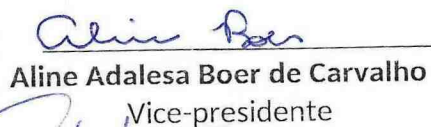 Aline Boer
Aline Adalesa Boer de Carvalho
Vice-presidente